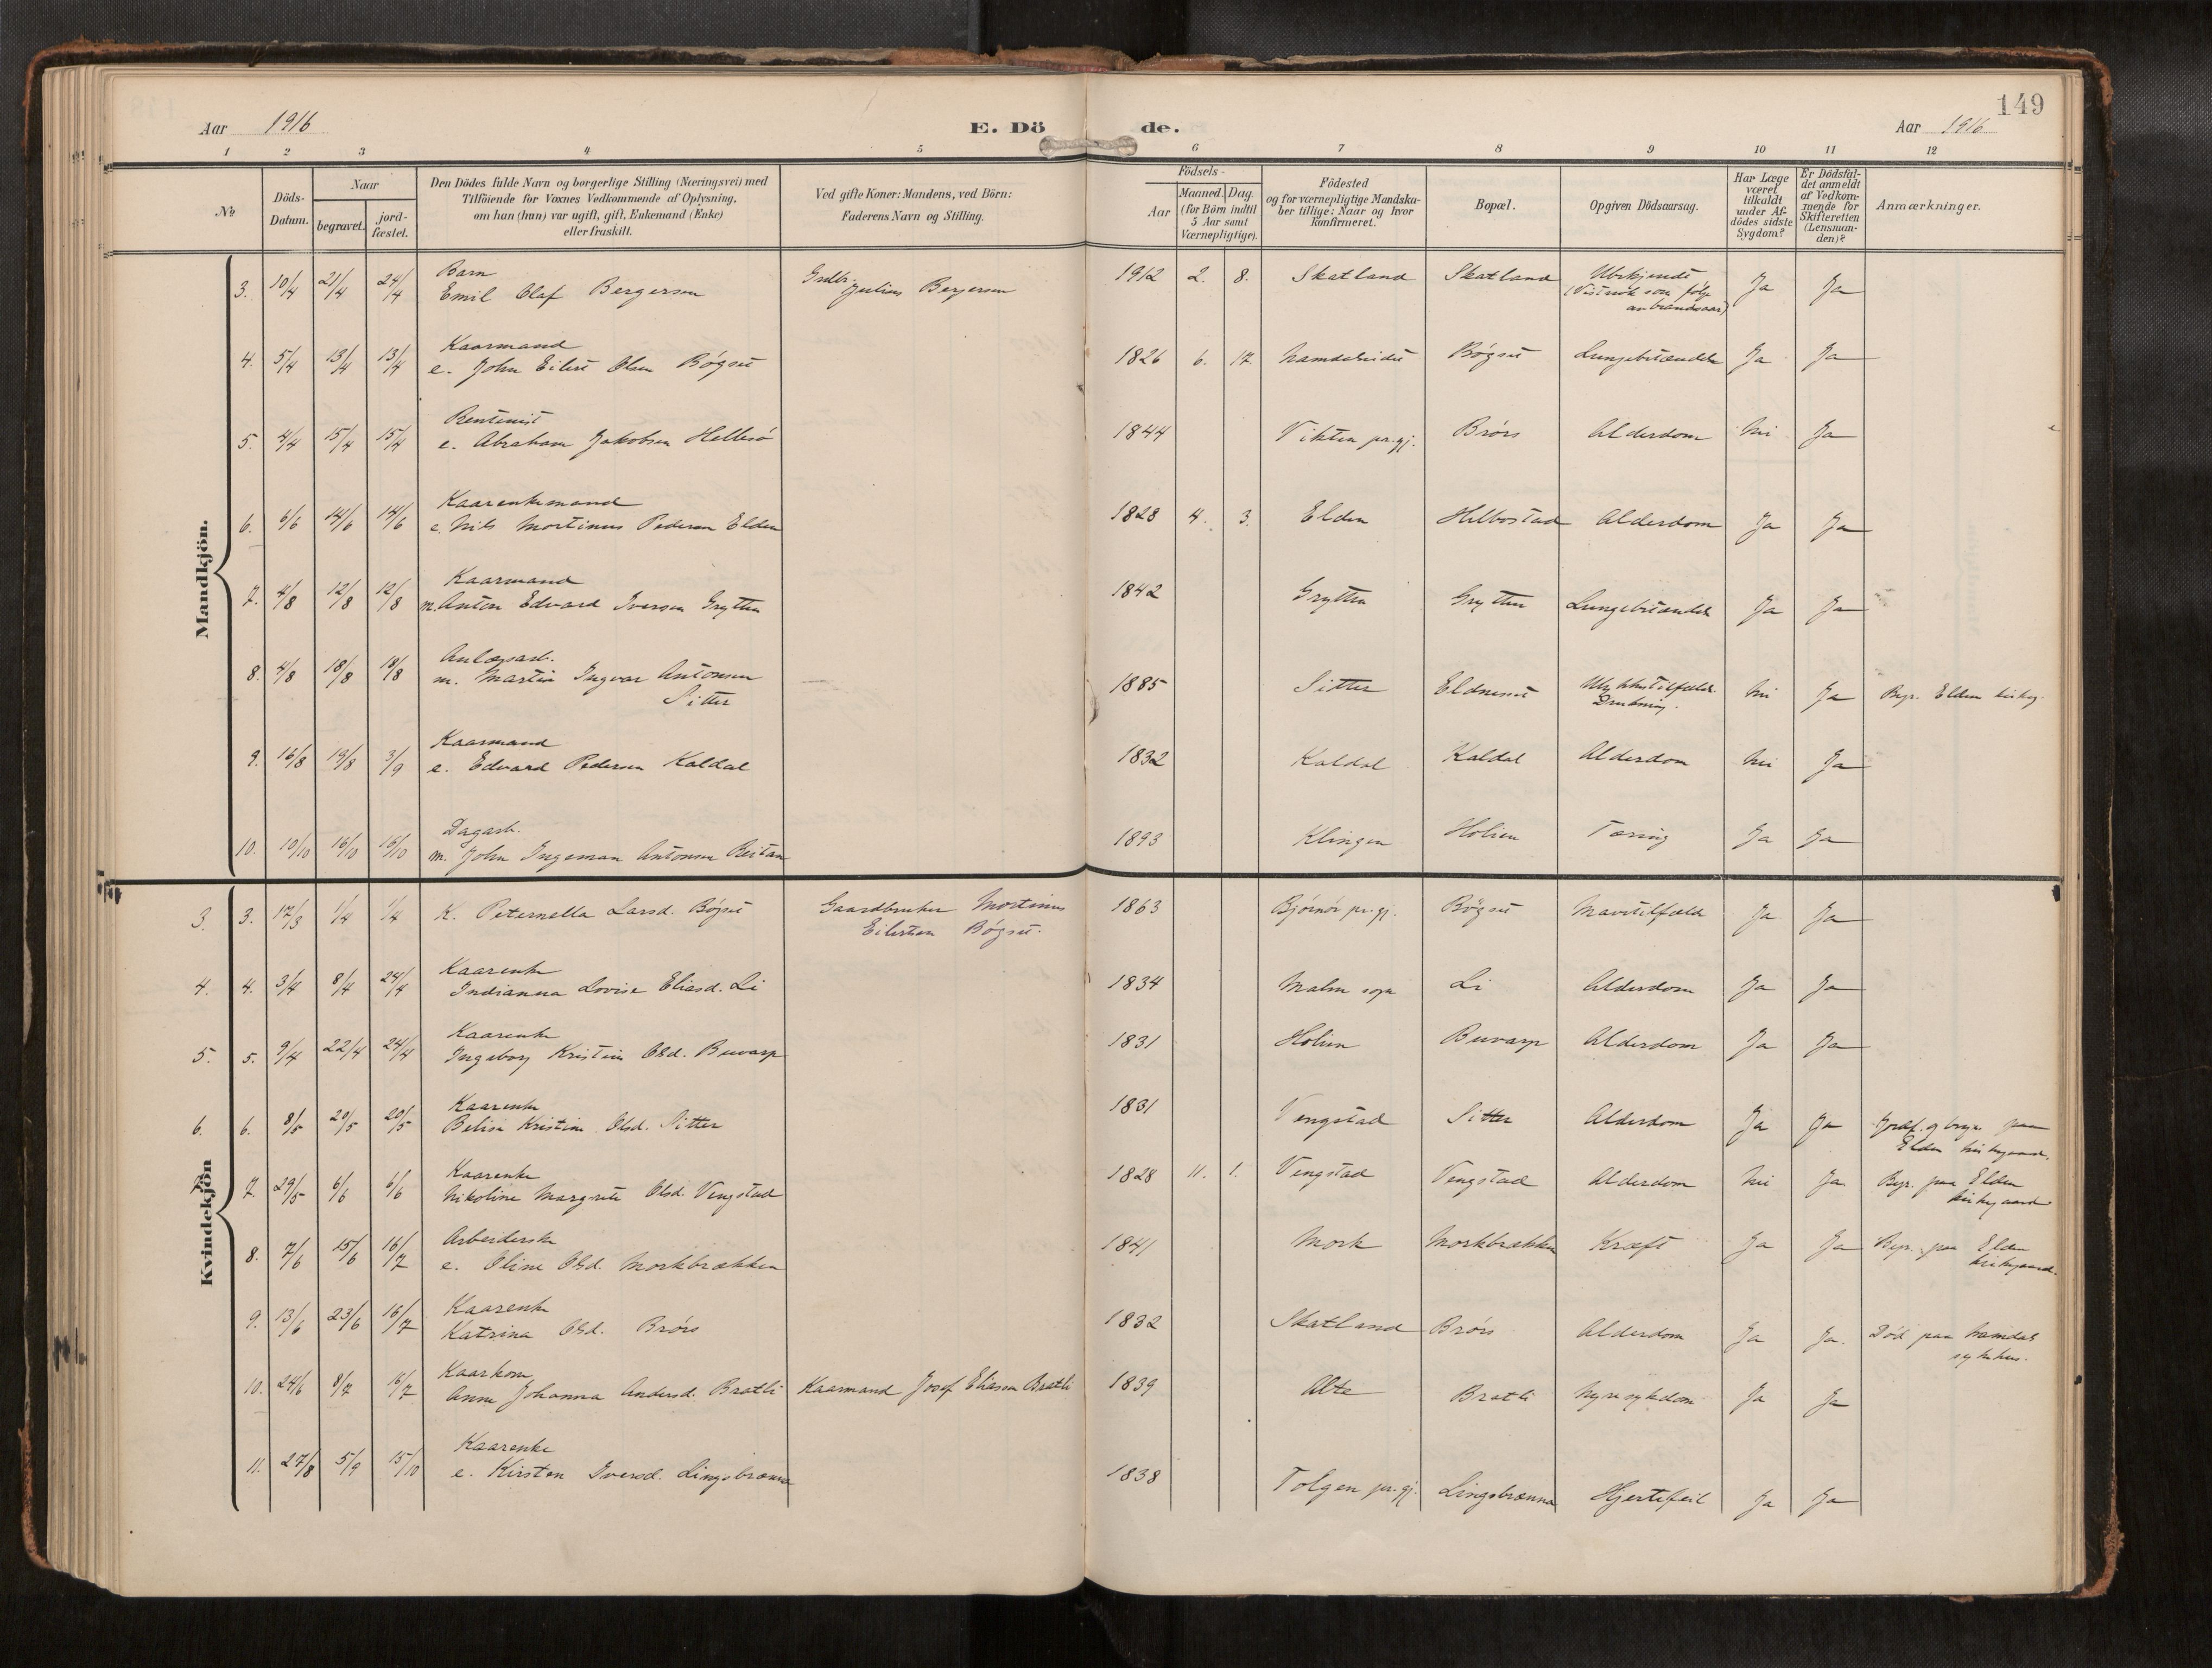 149
Aar 1916
E. Dö de.
Aar 1916
1 2 3 4 5 6 7 8 9 10 11 12
No
Döds-Datum.
Naar
begravet.
jord-fæstet.
Den Dödes fulde Navn og borgerlige Stilling (Næringsvei) med
Tilföiende for Voxnes Vedkommende af Oplysning,
om han (hun) var ugift, gift, Enkemand (Enke)
eller fraskilt.
Ved gifte Koner: Mandens, ved Börn:
Faderens Navn og Stilling.
Födsels-
Aar
Maaned. Dag.
(for Börn indtil
5 Aar samt
Værnepligtige).
Födested
og for værnepligtige Mandska-
ber tillige: Naar og hvor
konfirmeret.
Bopæl.
Opgiven Dödsaarsag.
Har Læge
været
tilkaldt
under Af-
dödes sidste
Sygdom?
Er Dödsfal-
det anmeldt
af Vedkom-
mende for
Skifteretten
(Lensman-
den)?
Anmærkninger.
Mandkjön.
Barn
3. 10/4 21/4 24/4 Emil Olaf Bergersen Julius Bergersen 1912 2. 8. Skatland Skatland Ubekjendt Ja Ja
(Vistnok som følge
av brandsaar)
Kaarmand
4. 5/4 13/4 13/4 e. John Eilert Olsen Bøgset 1826 6. 17. Namdalseidet Bøgset Lungebetændelse Ja Ja
Rentenist
5. 4/4 15/4 15/4 e. Abraham Jakobsen Hellesø 1844 Vikten pr.gj. Brørs Alderdom Nei Ja
Kaarenkemand
6. 6/6 14/6 14/6 e. Nils Mortinus Pedersen Elden 1828 4. 3. Elden Helbostad Alderdom Ja Ja
Kaarmand
7. 4/8 12/8 12/8 m. Anton Edvard Iversen Grytten 1842 Grytten Grytten Lungebetændelse Ja Ja
Anlægsarb.
8. 4/8 18/8 18/8 m. Martin Ingvar Antonsen 1885 Sitter Eldneset Ulykkestilfælde. Nei Ja Begr. Elden kirkeg.
Sitter Drukning.
Kaarmand
9. 16/8 19/8 3/9 e. Edvard Pedersen Kaldal 1832 Kaldal Kaldal Alderdom Nei Ja
Dagarb.
10. 10/10 16/10 16/10 m. John Ingeman Antonsen Reitan 1893 Klingen Holien Tæring Ja Ja
Kvindekjön
3. 3. 17/3 1/4 1/4 K. Peternella Larsd. Bøgset Gaardbruker Mortinus 1863 Bjørnør pr.gj. Bøgset Mavetilfælde Ja Ja
Eilertsen Bøgset.
Kaarenke
4. 4. 3/4 8/4 24/4 Indianna Lovise Eliasd. Li 1834 Malm sogn Li Alderdom Ja Ja
Kaarenke
5. 5. 9/4 22/4 24/4 Ingeborg Kristine Olsd. Buvarp 1831 Holien Buvarp Alderdom Ja Ja
Kaarenke
6. 6. 8/5 20/5 20/5 Belise Kristine Olsd. Sitter 1831 Vengstad Sitter Alderdom Ja Ja Jordf. og begr. paa
Elden kirkegaard.
Kaarenke
7. 7. 29/5 6/6 6/6 Nikoline Margrete Olsd. Vengstad 1828 11. 1. Vengstad Vengstad Alderdom Nei Ja Begr. paa Elden
kirkegaard
Arbeiderske
8. 7/6 15/6 16/7 e. Oline Olsd. Morkbrækken 1841 Mork Morkbrækken Kræft Ja Ja Begr. paa Elden
kirkegaard.
Kaarenke
9. 13/6 23/6 16/7 Katrina Olsd. Brørs 1832 Skatland Brørs Alderdom Ja Ja. Død paa Namdal
sykehus.
Kaarkone
10. 24/6 8/7 16/7 Anne Johanna Andersd. Bratli Kaarmand Josef Eliasen Bratli 1839 Bratli Nyresykdom Ja Ja
Kaarenke
11. 27/8 5/9 15/10 e. Kirsten Iversd. Lingsbrænna 1838 Tolgen pr.gj. Lingsbrænna Hjertefeil Ja Ja